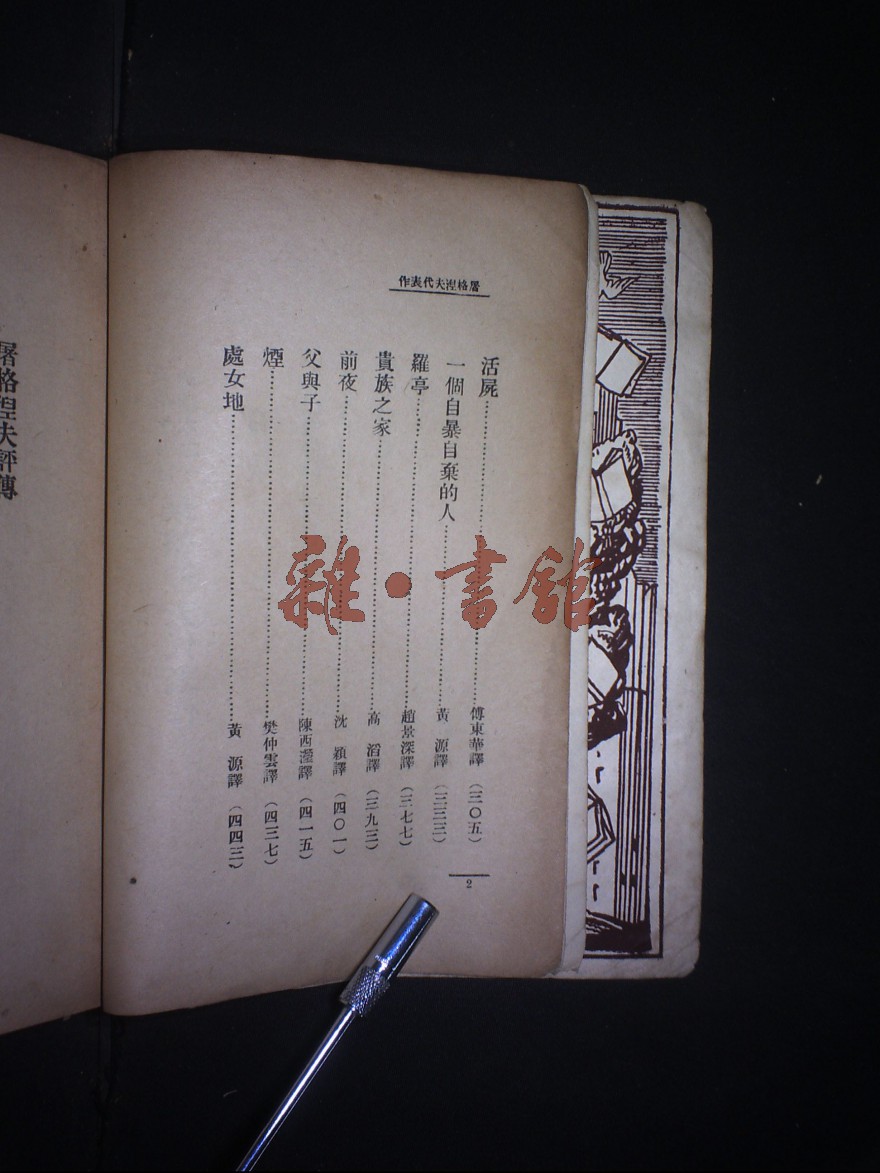 屠格涅夫代表作
活屍……傅東華譯（三〇五）
一個自暴自棄的人……黃源譯（三三三）
羅亭……趙景深譯（三七七）
貴族之家……高滔譯（三九三）
前夜……沈穎譯（四〇一）
父與子……陳西瀅譯（四一五）
煙……樊仲雲譯（四三七）
處女地……黃源譯（四四三）
2
屠格涅夫評傳
雜·書館